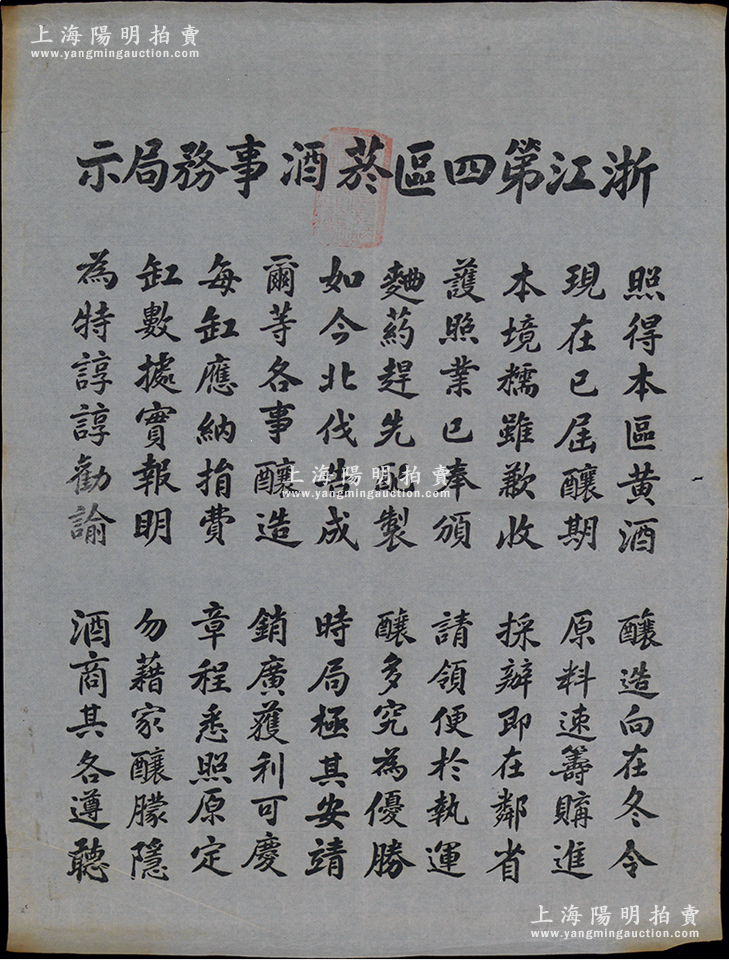 上海陽明拍賣
www.yangmingauction.com
浙江第四區菸酒事務局示
照得本區黃酒 釀造向在冬令
現在已屆釀期 原料速籌購進
本境糯雖歉收 採辦即在鄰省
護照業已奉頒 請領便於執運
麯葯趕先配製 釀多究為優勝
如今北伐告成 時局極其安靖
爾等各事釀造 銷廣獲利可慶
每缸應納捐費 章程悉照原定
缸數據實報明 勿藉家釀朦隱
為特諄諄勸諭 酒商其各遵聽
上海陽明拍賣
www.yangmingauction.com
上海陽明拍賣
www.yangmingauction.com